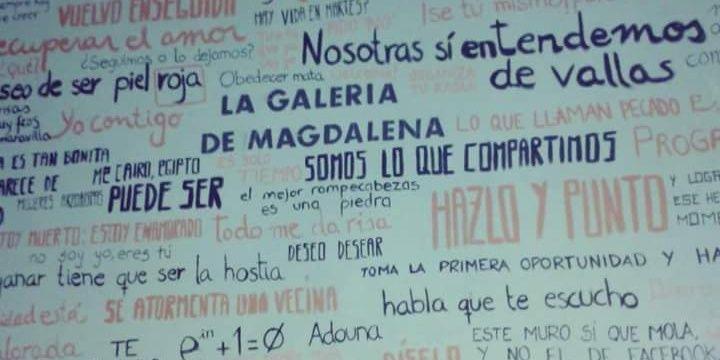 VUELVO ENSEGUIDA
HAY VIDA EN MARTES?
Recuperar el amor
¿Seguimos o lo dejamos?
¿qué?
Nosotras sí entendemos
de vallas
con
seo de ser piel roja
Obedecer mata
LA GALERIA
DE MAGDALENA
Yo contigo
muy feos
maravilla
LO QUE LLAMAN PECADO
A ES TAN BONITA
ME CAIRO, PEGIPTO
ES SOLO
TIEMPO
SOMOS LO QUE COMPARTIMOS
PROGR
ARECE DE
PUEDE SER
el mejor rompecabezas
es una piedra
HAZLO Y PUNTO
Y LOGR
ESE HE
MOM
TOY MUERTO: ESTOY ENAMORADO
Todo me da risa
no soy yo, eres tú
DESEO DESEAR
ganar tiene que ser la hostia
TOMA LA PRIMERA OPORTUNIDAD Y HA
SE ATORMENTA UNA VECINA
habla que te escucho
lorada
TE
e^in+1=Ø
Adouna
ESTE MURO SÍ QUE MOLA,
Y NO EL DE FACEBOOK